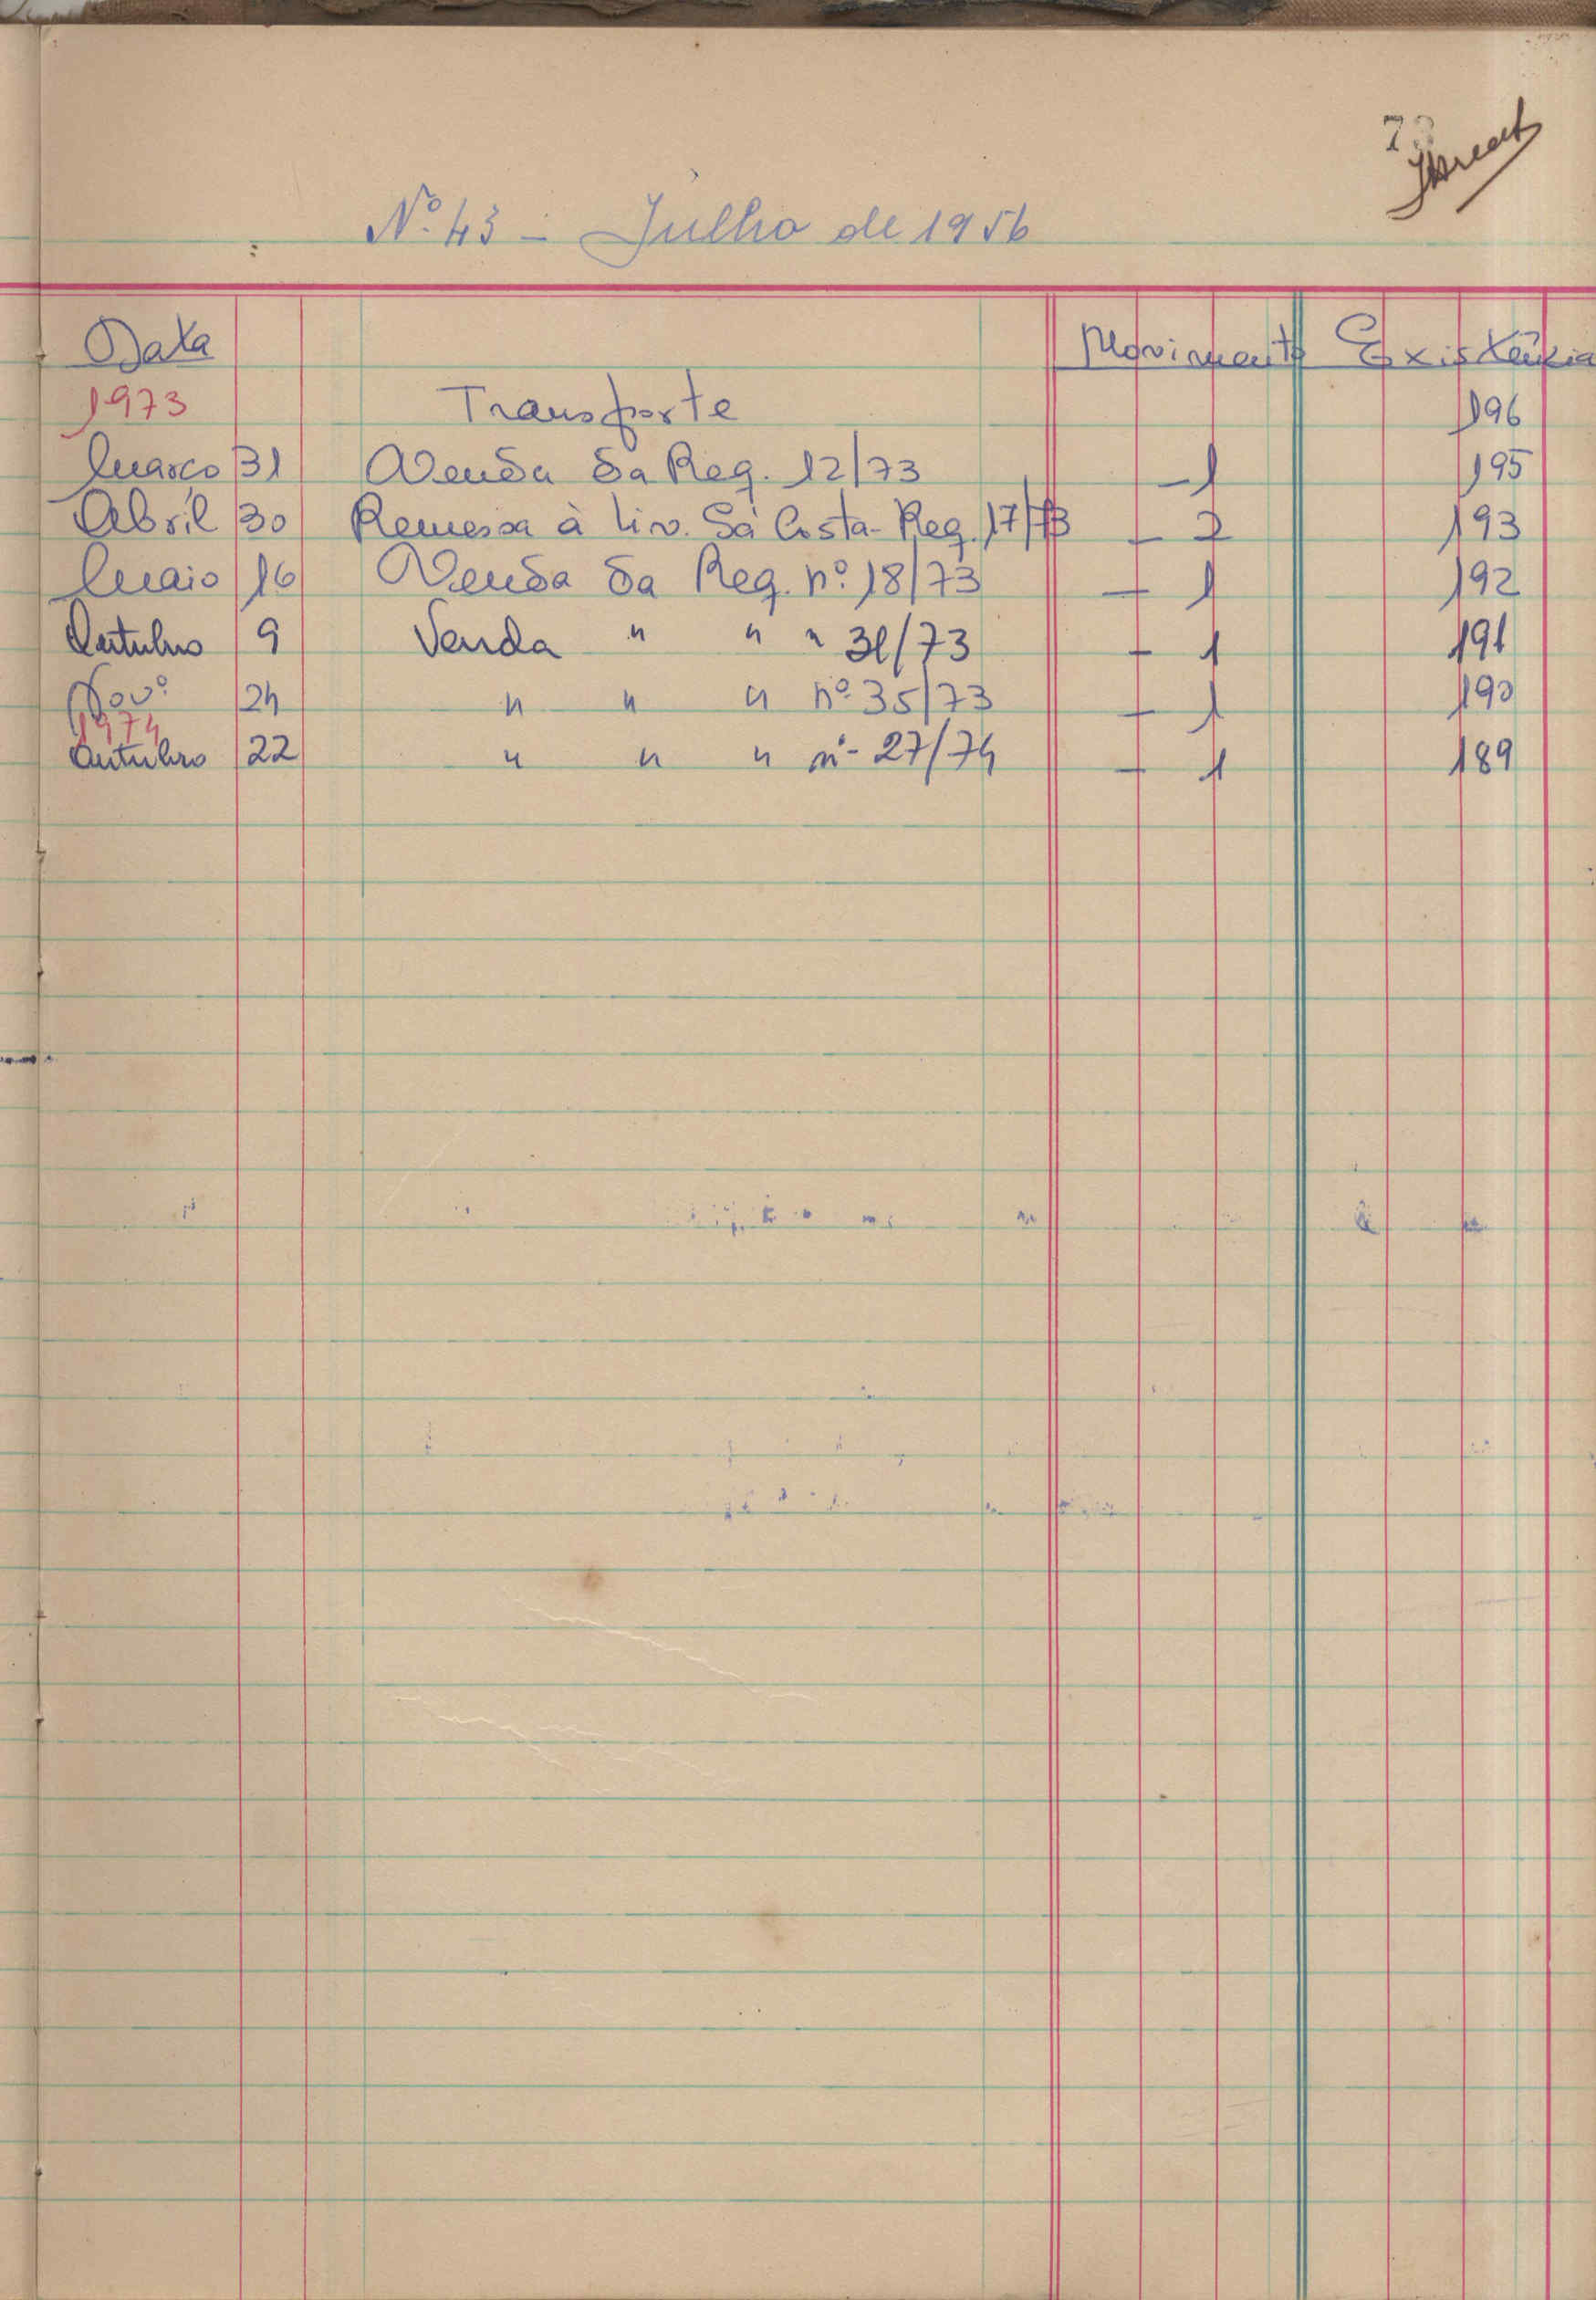 Nº 43 - Julho de 1956
Data Movimento Existência
1973 Transporte 196
Março 31 Venda da Req. 12/73 - 1 195
Abril 30 Remessa à Liv. Sá Costa - Req. 17/73 - 2 193
Maio 16 Venda da Req. nº 18/73 - 1 192
Outubro 9 Venda " " " 31/73 - 1 191
Novº 24 " " " nº 35/73 - 1 190
1974
Outubro 22 " " " nº 27/74 - 1 189